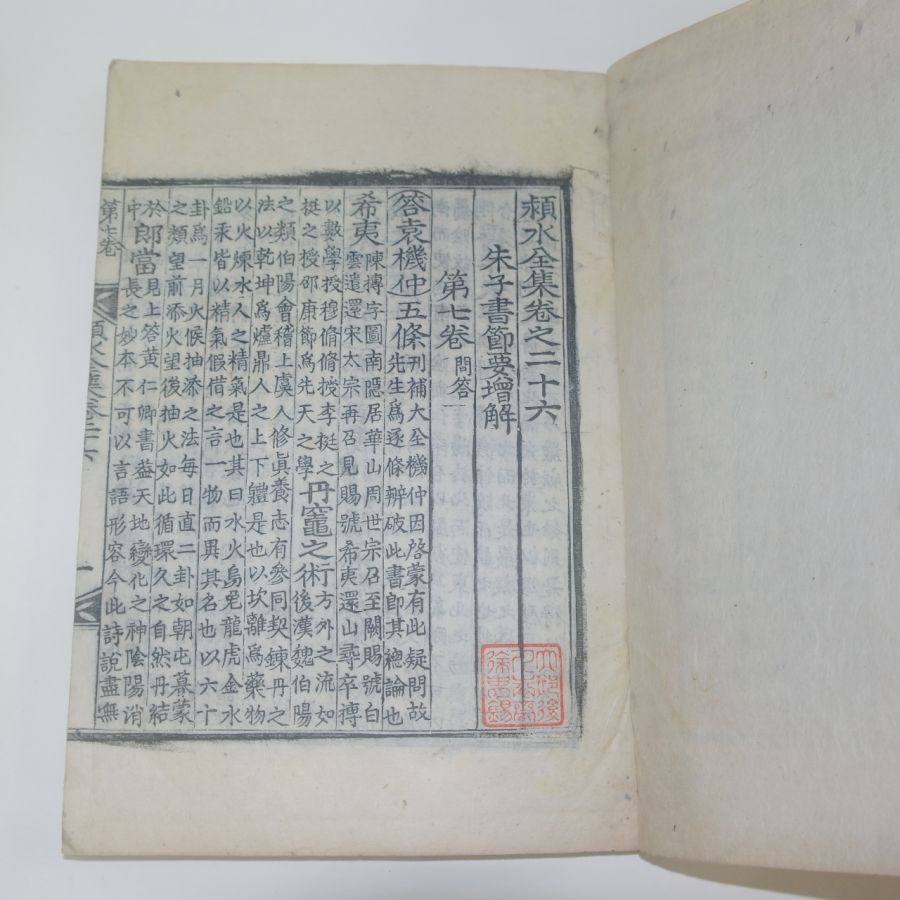 潁水全集卷之二十六
朱子書節要增解
第七卷 問答一
答袁機仲五條 刊補大全機仲因啓蒙有此疑問故
先生爲逐條辨破此書卽其總論也
希夷 陳摶字圖南隱居華山周世宗召至闕賜號白
雲遣還宋太宗再召見賜號希夷還山尋卒摶
以數學授穆脩脩授李挺之
挺之授邵康節爲先天之學
丹竈之術 方外之流如
後漢魏伯陽
之類伯陽會稽上虞人修眞養志有參同契鍊丹之
法以乾坤爲爐鼎人之上下軆是也以坎離爲藥物
以火煉水人之精氣是也其曰水火烏兎龍虎金水
鉛汞皆以精氣假借之言一物而異其名也以六十
卦爲一月火候抽添之法每日直二卦如朝屯暮蒙
之類望前添火望後抽火如此循環久之自然丹結
於
中
郎當 見上答黃仁卿書盖天地變化之神陰陽消
長之妙本不可以言語形容今此詩說盡無
第七卷
一